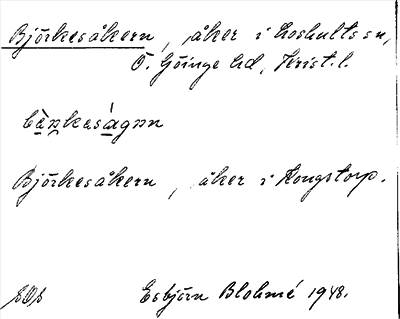 Bjørkesåkern, åker i Loshults sn,
Ö. Göinge hd, Krist. l.
Bjørkesåkern, åker i Kongstorp.
Esbjörn Blohmé 1948.